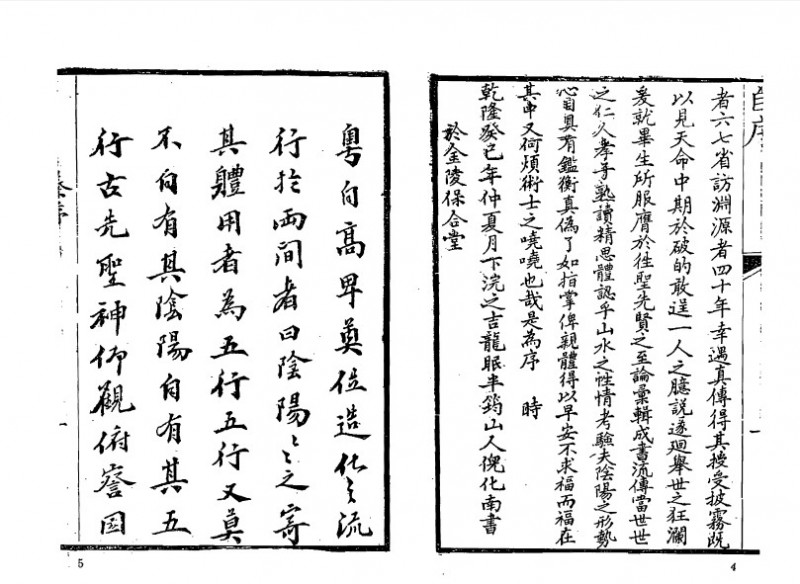 自序
者六七省訪淵源者四十年幸遇真傳得其授受披霧既
以見天命中期於破的敢逞一人之臆說遂廻舉世之狂瀾
爰就畢生所服膺於徃聖先賢之至論彙輯成書流傳當世世
之仁人孝子熟讀精思體認乎山水之性情考驗夫陰陽之形勢
心目具有鑑衡真僞了如指掌俾親體得以早安不求福而福在
其中又何煩術士之嘵嘵也哉是為序 時
乾隆癸巳年仲夏月下浣之吉龍眠半筠山人倪化南書
於金陵保合堂
4
粵自高卑奠位造化之流
行於兩間者曰陰陽〻〻之寄
其體用者為五行五行又莫
不自有其陰陽自有其五
行古先聖神仰觀俯察因
5